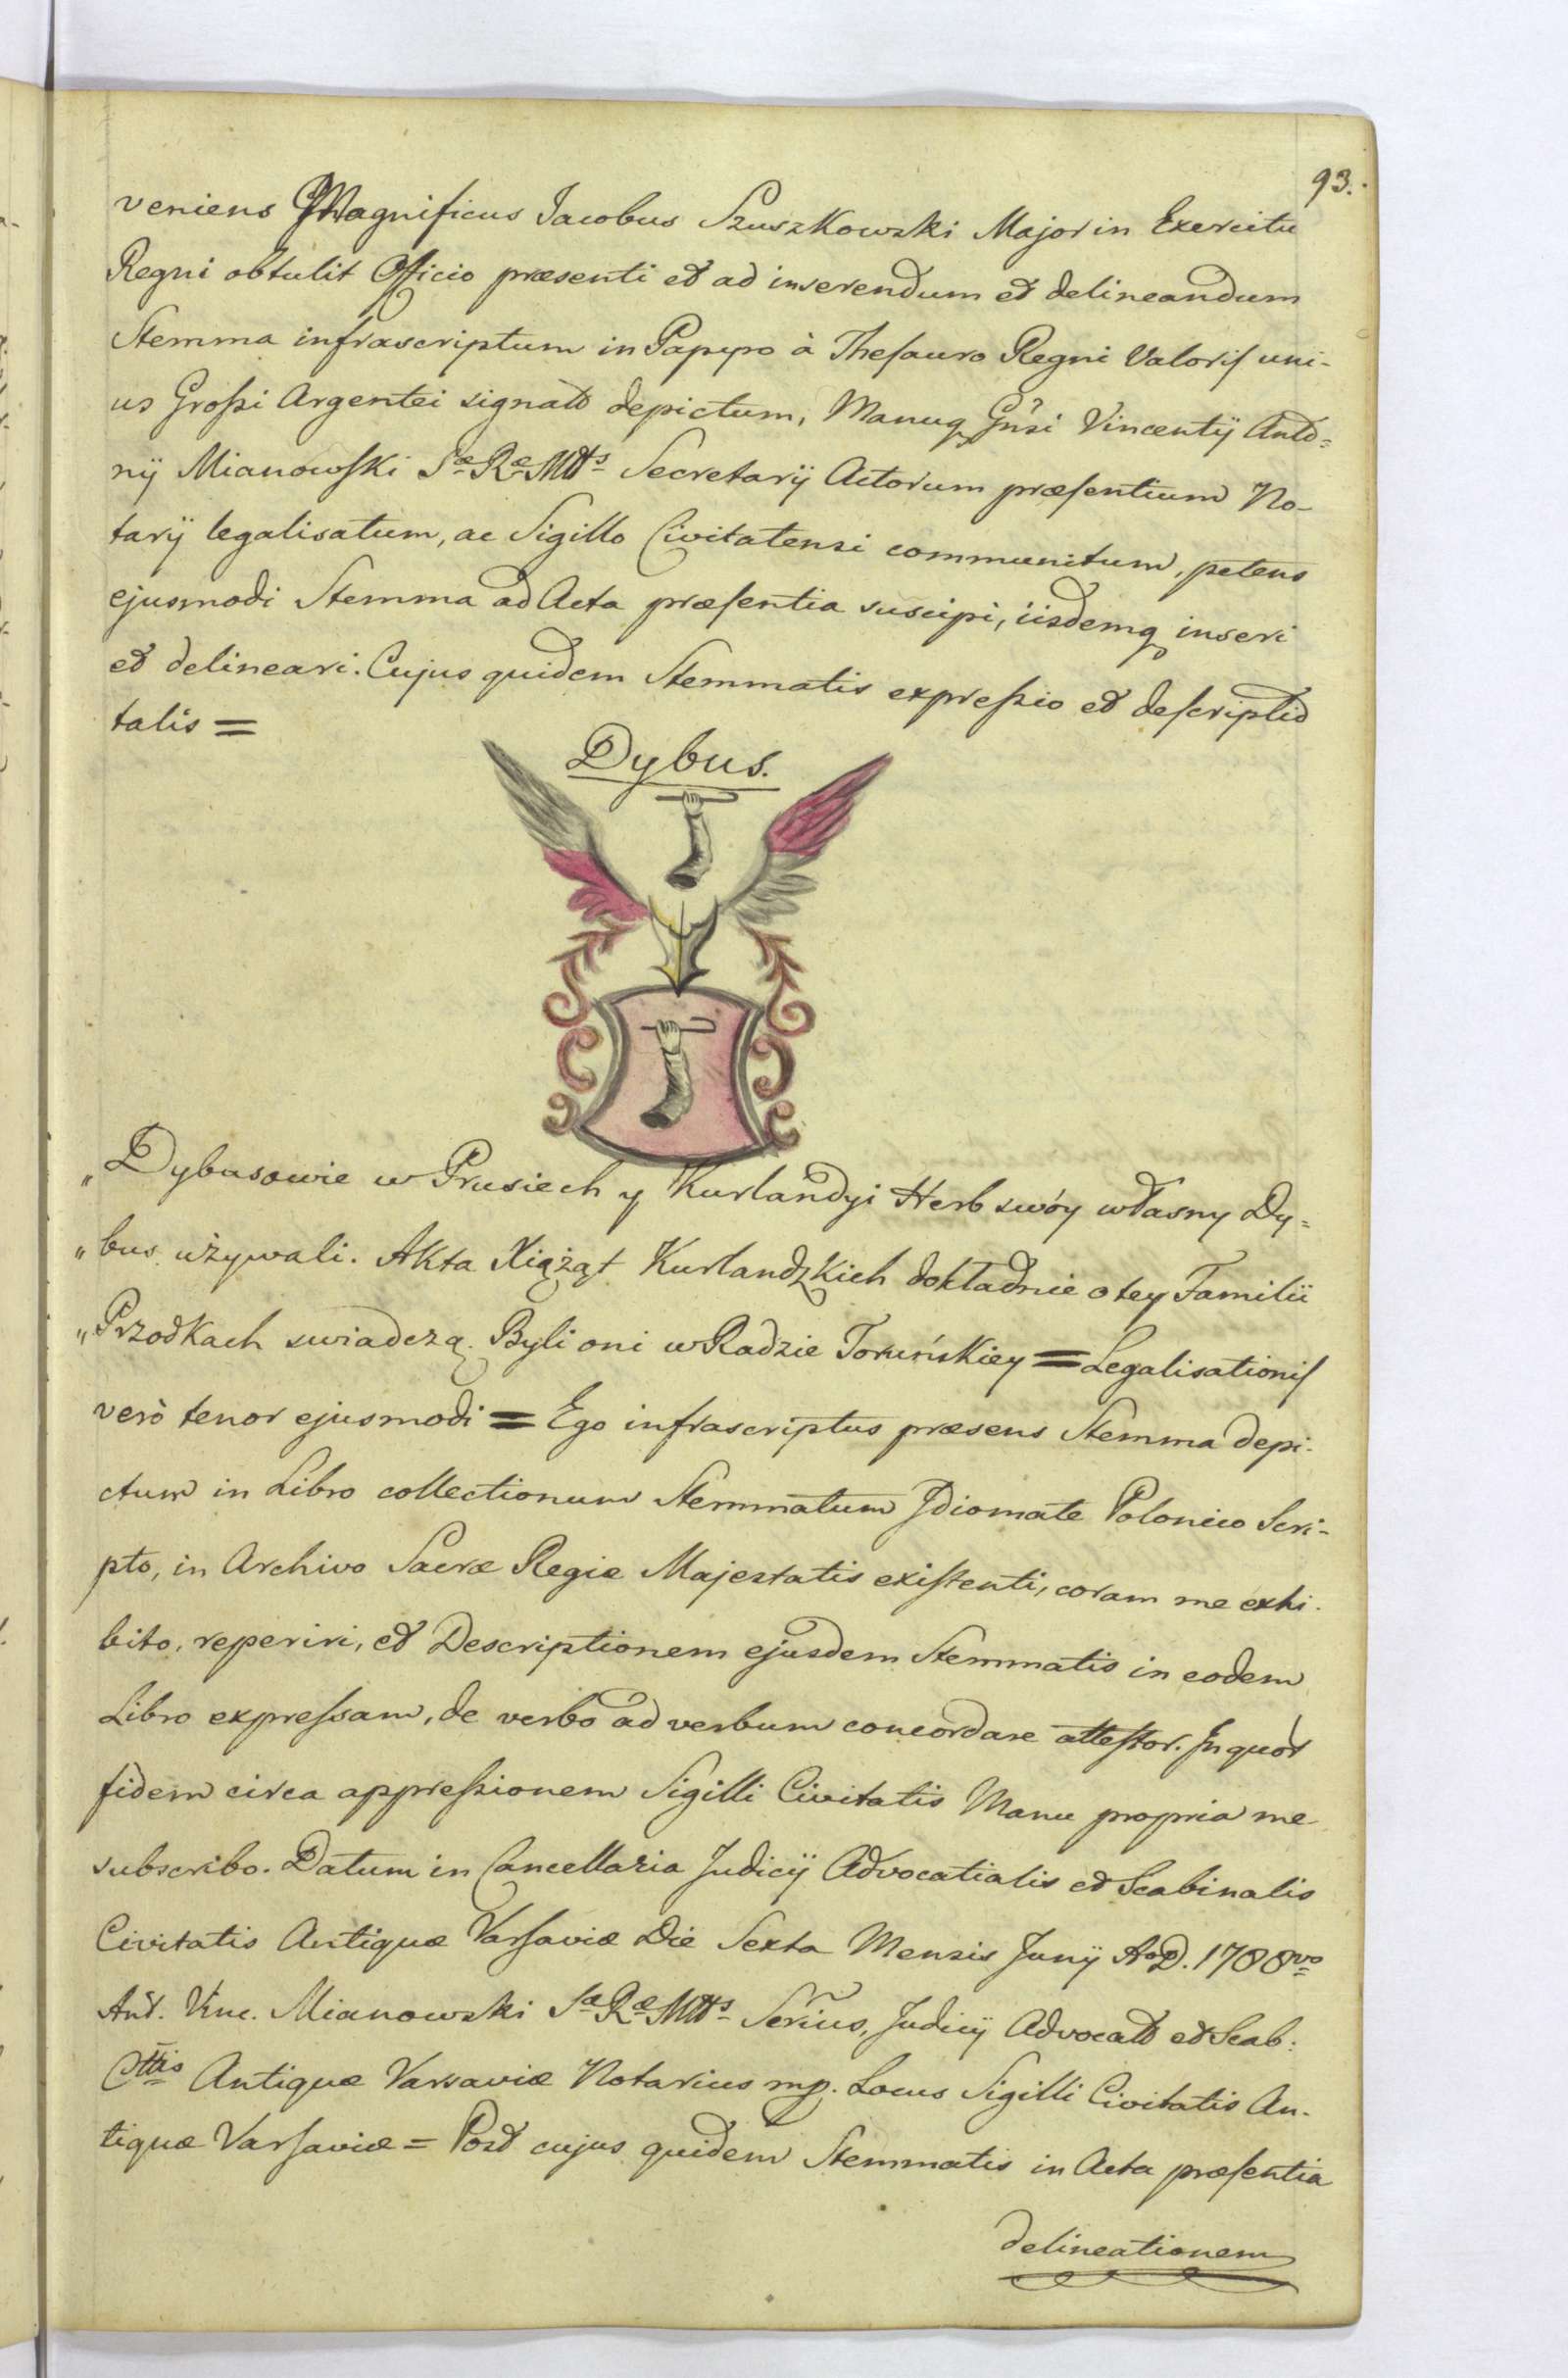 93.
veniens Magnificus Jacobus Szuszkowski Major in Exercitu
Regni obtulit Officio præsenti et ad inserendum et delineandum
Stemma infrascriptum in Papyro à Thesauro Regni Valoris uni-
us Grossi Argentei signato depictum, Manuq Gnsi Vincentij Anto=
nij Mianowski Sæ Ræ Mttis Secretarij Actorum præsentium No-
tarij legalisatum, ac Sigillo Civitatensi communitum, petens
ejusmodi Stemma ad Acta præsentia suscipi, iisdemq inseri
et delineari. Cujus quidem Stemmatis expressio et descriptio
talis =
Dybus.
„Dybusowie w Prusiech y Kurlandyi Herb swóy własny Dy=
„bus używali. Akta Xiążąt Kurlandzkich dokładnie o tey Familii
„Przodkach swiadczą. Byli oni w Radzie Toruńskiey = Legalisationis
verò tenor ejusmodi = Ego infrascriptus præsens Stemma depi-
ctum in Libro collectionum Stemmatum Idiomate Polonico Scri-
pto, in Archivo Sacræ Regiæ Majestatis existenti, coram me exhi-
bito, reperiri, et Descriptionem ejusdem Stemmatis in eodem
Libro expressam, de verbo ad verbum concordare attestor. In quor
fidem circa appressionem Sigilli Civitatis Manu propria me
subscribo. Datum in Cancellaria Judicij Advocatialis et Scabinalis
Civitatis Antiquæ Varsaviæ Die Sexta Mensis Junij Ao D. 1788vo
Ant. Vinc. Mianowski Sæ Ræ Mttis Serius, Judicij Advocato et Scab:
Cttis Antiquæ Varsaviæ Notarius mp. Locus Sigilli Civitatis An-
tiquæ Varsaviæ = Post cujus quidem Stemmatis in Acta præsentia
delineationem